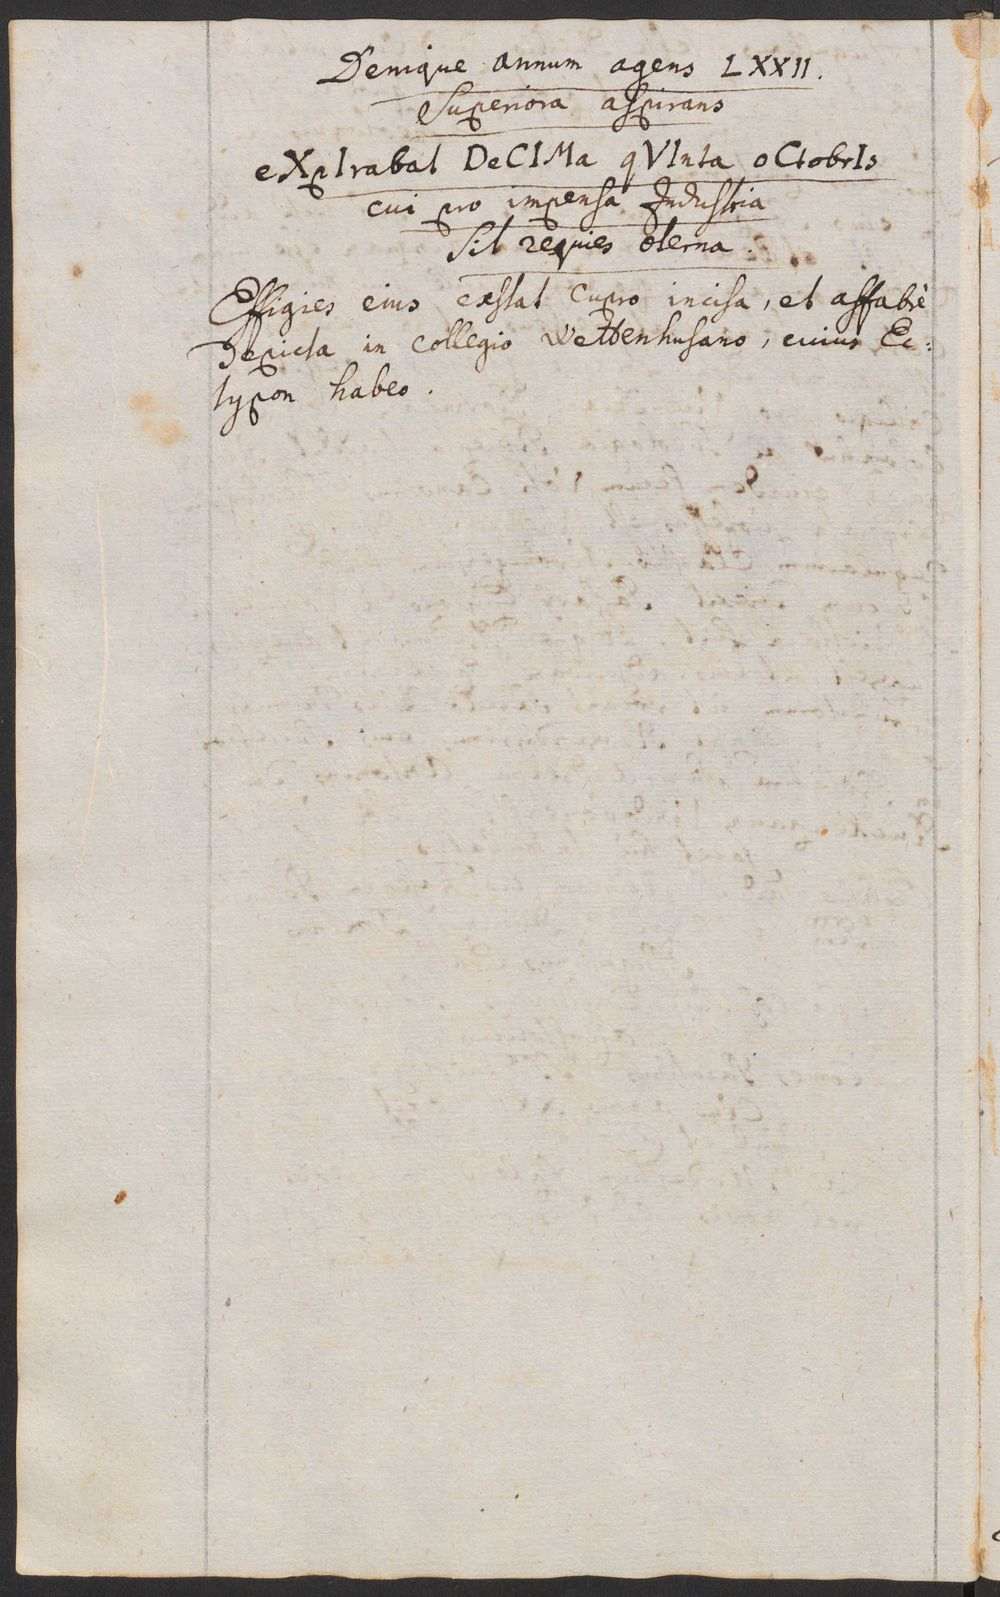 Denique annum agens LXXII.
Superiora aspirans
eXpIrabat DeCIMa qVInta oCtobrIs
cui pro impensa Industria
Sit requies æterna.
Effigies eius exstat cupro incisa, et affabrè
depicta in collegio Wettenhusano, cuius Ec:
typon habeo.